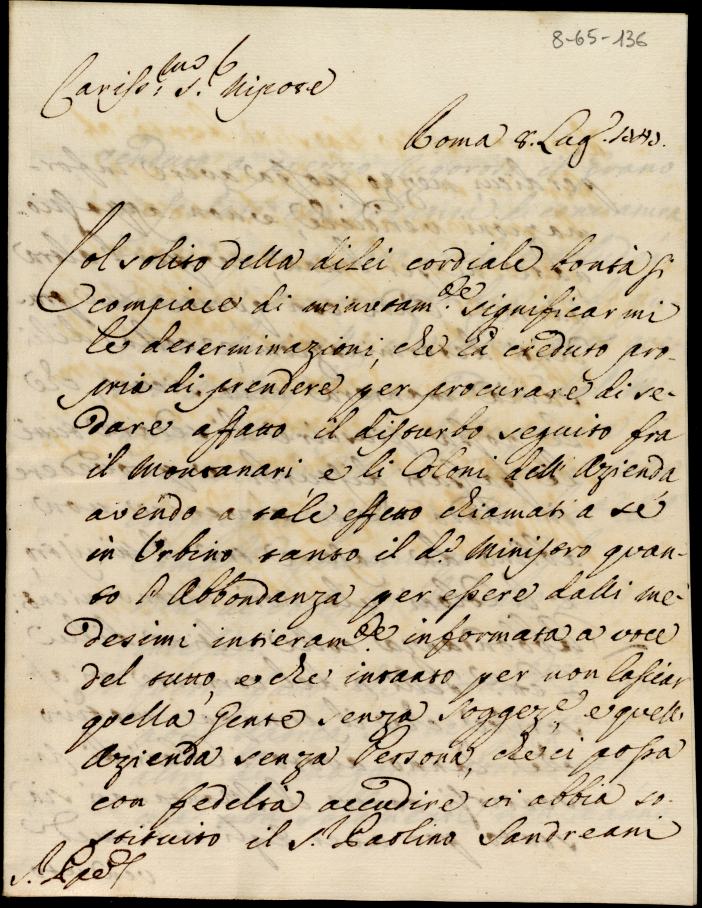 8-65-136
Cariss.mo S.r Nipote
Roma 8. Lug.o
Col solito della di lei cordiale bontà si
compiace di minutam.te significarmi
le determinazioni, che hà creduto pro-
prie di prendere per procurare di se-
dare affatto il disturbo seguito fra
il Montanari e li Coloni dell'Azienda,
avendo a tale effetto chiamati a sè
in Urbino tanto il d.o Ministro quan-
to l'Abbondanza per essere dalli me-
desimi intieram.te informata a voce
del tutto, e che intanto per non lasciar
quella Gente senza soggez.e, e quell'
Azienda senza Persona, che ci possa
con fedeltà accudire vi abbia so-
stituito il S.r Paolino Sandreani